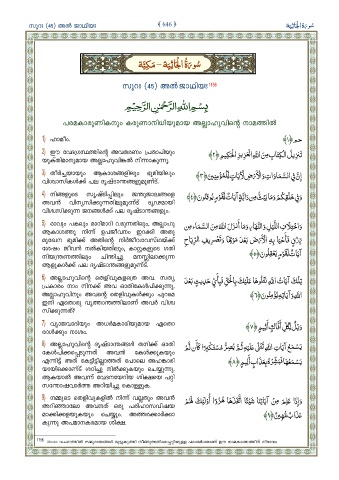 സൂറഃ (45) അൽ ജാഥിയഃ ﴾ 646 ﴿ سُورَةُ الْجَاثِيَة
سُورَةُ الْجَاثِيَةِ - مَكِّيَّة
സൂറഃ (45) അൽ ജാഥിയഃ
بِسْمِ اللَّهِ الرَّحْمَٰنِ الرَّحِيمِ
പരമകാരുണികനും കരുണാനിധിയുമായ അല്ലാഹുവിന്റെ നാമത്തിൽ
1) ഹാമീം.
حم ﴿١﴾
2) ഈ വേദഗ്രന്ഥത്തിന്റെ അവതരണം പ്രതാപിയും
യുക്തിമാനുമായ അല്ലാഹുവിങ്കൽ നിന്നാകുന്നു.
تَنزِيلُ الْكِتَابِ مِنَ اللَّهِ الْعَزِيزِ الْحَكِيمِ ﴿٢﴾
3) തീർച്ചയായും ആകാശങ്ങളിലും ഭൂമിയിലും
വിശ്വാസികൾക്ക് പല ദൃഷ്ടാന്തങ്ങളുമുണ്ട്.
إِنَّ فِي السَّمَاوَاتِ وَالْأَرْضِ لَآيَاتٍ لِّلْمُؤْمِنِينَ ﴿٣﴾
4) നിങ്ങളുടെ സൃഷ്ടിപ്പിലും ജന്തുജാലങ്ങളെ
അവൻ വിന്യസിക്കുന്നതിലുമുണ്ട് ദൃഢമായി
വിശ്വസിക്കുന്ന ജനങ്ങൾക്ക് പല ദൃഷ്ടാന്തങ്ങളും.
وَفِي خَلْقِكُمْ وَمَا يَبُثُّ مِن دَابَّةٍ آيَاتٌ لِّقَوْمٍ يُوقِنُونَ ﴿٤﴾
5) രാവും പകലും മാറിമാറി വരുന്നതിലും, അല്ലാഹു
ആകാശത്തു നിന്ന് ഉപജീവനം ഇറക്കി അതു
മുഖേന ഭൂമിക്ക് അതിന്റെ നിർജീവാവസ്ഥയ്ക്ക്
ശേഷം ജീവൻ നൽകിയതിലും, കാറ്റുകളുടെ ഗതി
നിയന്ത്രണത്തിലും ചിന്തിച്ചു മനസ്സിലാക്കുന്ന
ആളുകൾക്ക് പല ദൃഷ്ടാന്തങ്ങളുമുണ്ട്.
وَاخْتِلَافِ اللَّيْلِ وَالنَّهَارِ وَمَا أَنزَلَ اللَّهُ مِنَ السَّمَاءِ مِن
رِّزْقٍ فَأَحْيَا بِهِ الْأَرْضَ بَعْدَ مَوْتِهَا وَتَصْرِيفِ الرِّيَاحِ
آيَاتٌ لِّقَوْمٍ يَعْقِلُونَ ﴿٥﴾
6) അല്ലാഹുവിന്റെ തെളിവുകളത്രെ അവ. സത്യ
പ്രകാരം നാം നിനക്ക് അവ ഓതികേൾപിക്കുന്നു.
അല്ലാഹുവിനും അവന്റെ തെളിവുകൾക്കും പുറമെ
ഇനി ഏതൊരു വൃത്താന്തത്തിലാണ് അവർ വിശ്വ
സിക്കുന്നത്?
تِلْكَ آيَاتُ اللَّهِ نَتْلُوهَا عَلَيْكَ بِالْحَقِّ فَبِأَيِّ حَدِيثٍ بَعْدَ
اللَّهِ وَآيَاتِهِ يُؤْمِنُونَ ﴿٦﴾
7) വ്യാജവാദിയും അധർമകാരിയുമായ ഏതൊ
രാൾക്കും നാശം.
وَيْلٌ لِّكُلِّ أَفَّاكٍ أَثِيمٍ ﴿٧﴾
8) അല്ലാഹുവിന്റെ ദൃഷ്ടാന്തങ്ങൾ തനിക്ക് ഓതി
കേൾപിക്കപ്പെടുന്നത് അവൻ കേൾക്കുകയും
എന്നിട്ട് അത് കേട്ടിട്ടില്ലാത്തത് പോലെ അഹങ്കാരി
യായിക്കൊണ്ട് ശഠിച്ചു നിൽക്കുകയും ചെയ്യുന്നു.
ആകയാൽ അവന്ന് വേദനയേറിയ ശിക്ഷയെ പറ്റി
സന്തോഷവാർത്ത അറിയിച്ചു കൊള്ളുക.
يَسْمَعُ آيَاتِ اللَّهِ تُتْلَىٰ عَلَيْهِ ثُمَّ يُصِرُّ مُسْتَكْبِرًا كَأَن لَّمْ
يَسْمَعْهَا فَبَشِّرْهُ بِعَذَابٍ أَلِيمٍ ﴿٨﴾
9) നമ്മുടെ തെളിവുകളിൽ നിന്ന് വല്ലതും അവൻ
അറിഞ്ഞാലോ അവനത് ഒരു പരിഹാസവിഷയ
മാക്കിക്കളയുകയും ചെയ്യും. അത്തരക്കാർക്കാ
കുന്നു അപമാനകരമായ ശിക്ഷ.
وَإِذَا عَلِمَ مِنْ آيَاتِنَا شَيْئًا اتَّخَذَهَا هُزُوًا أُولَٰئِكَ لَهُمْ
عَذَابٌ مُّهِينٌ ﴿٩﴾